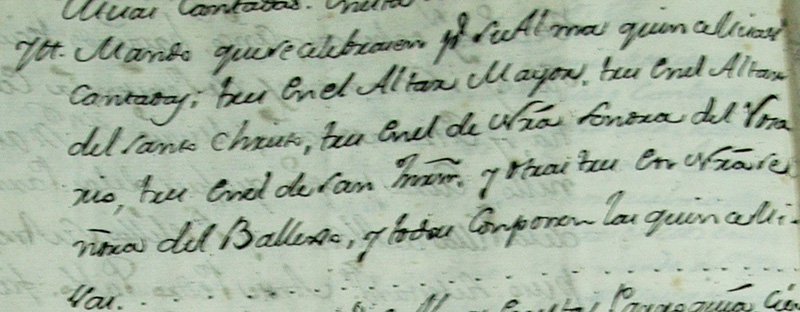 Misas Cantadas.
Ytt. Mando que se celebrasen pr. su Alma quince Missas
Cantadas; tres en el Altar Mayor, tres en el Altar
del santo Christo, tres en el de Nrã Señora del Rosa
rio, tres en el de san y otras tres en Nrã se
ñora del Ballexo, y todas Componen las quince Mi-
sas.
Parroquia